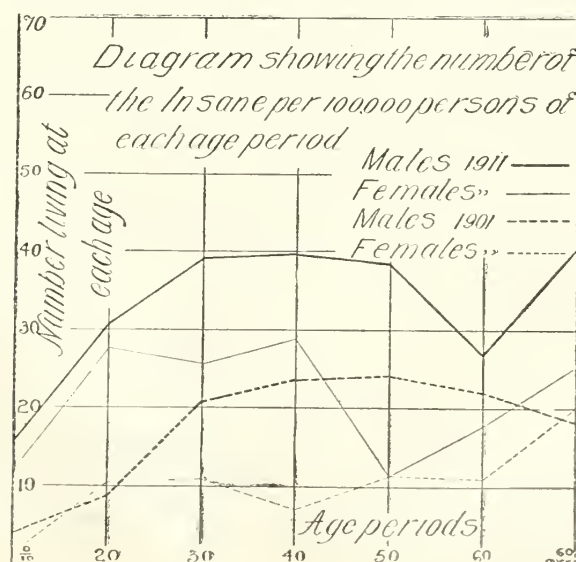 70
Diagram showing the number of
60
the Insane per 100,000 persons of
each age period
50
Males 1911
Females „
Males 1901
Females „
Number living at
each age
40
30
20
10
Age periods
0/10 20 30 40 50 60 60&
over